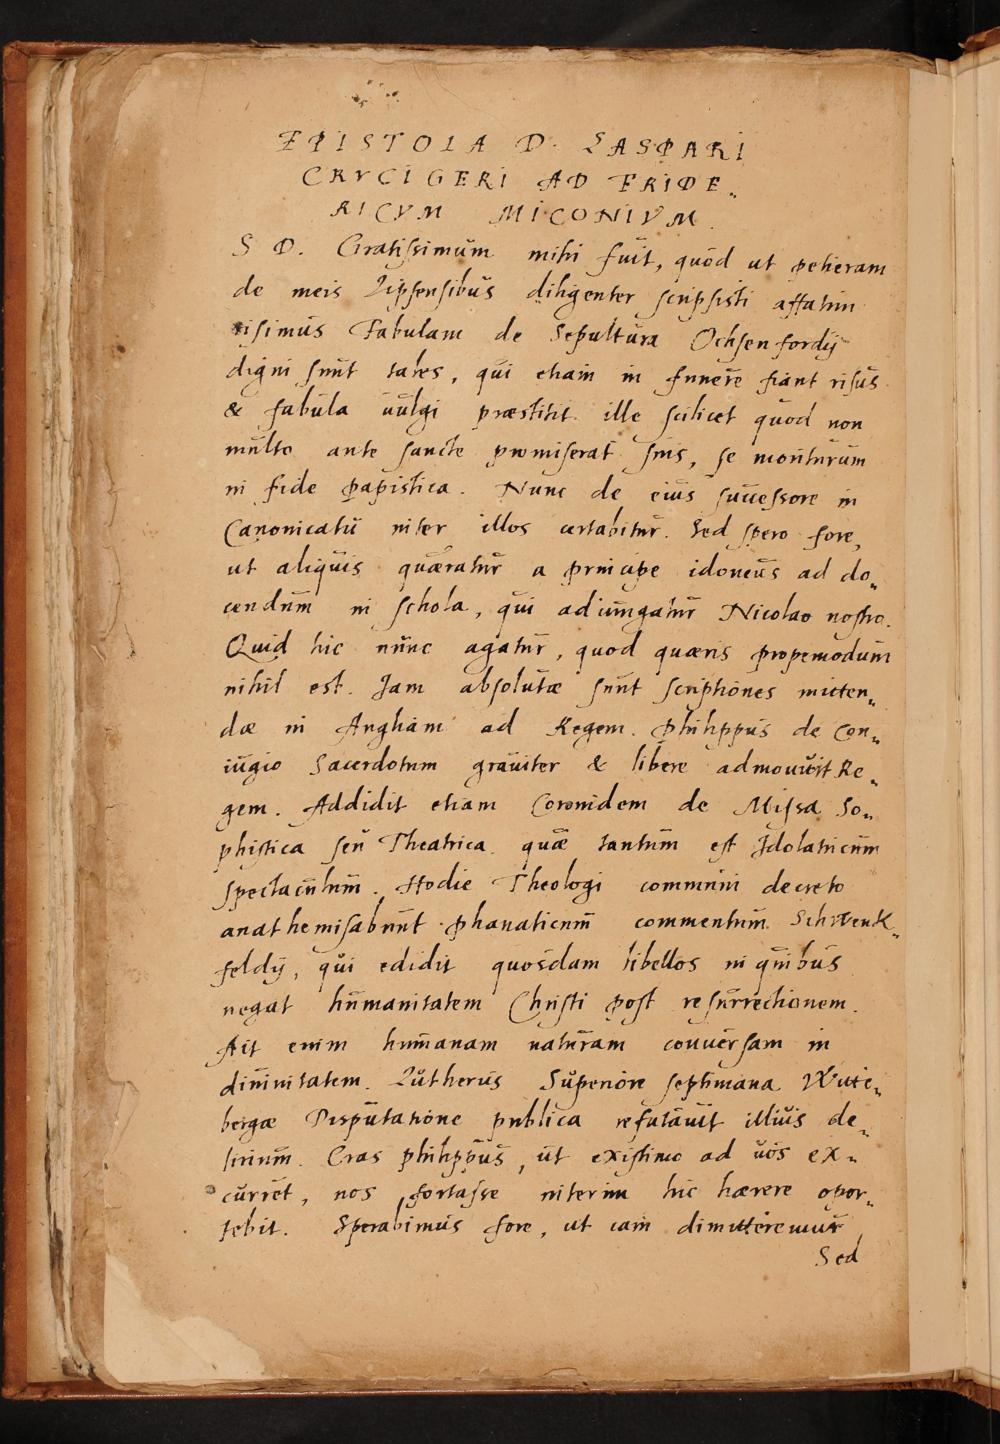 EPISTOLA D. CASPARI
CRVCIGERI AD FRIDE„
RICVM MICONIVM.
S D. Gratissimum mihi fuit, quod ut petieram
de meis Lipsensibus diligenter scripsisti affatim
risimus Fabulam de Sepultura Ochsenfordij
digni sunt tales, qui etiam in funere fiant risus
& fabula uulgi præstitit ille scilicet quod non
multo ante sancte promiserat suis, se moriturum
in fide papistica. Nunc de eius successore in
Canonicatu inter illos certabitur. Sed spero fore,
ut aliquis quæratur a principe idoneus ad do„
cendum in schola, qui adiungatur Nicolao nostro.
Quid hic nunc agatur, quod quæris propemodum
nihil est. Jam absolutæ sunt scriptiones mitten„
dæ in Angliam ad Regem. Philippus de Con„
iugio Sacerdotum grauiter & libere admouuit Re„
gem. Addidit etiam Coronidem de Missa So„
phistica seu Theatrica quæ tantum est Idolatricum
spectaculum. Hodie Theologi communi decreto
anathemisabunt phanaticum commentum Schwenk„
feldij, qui edidit quosdam libellos in quibus
negat humanitatem Christi post resurrectionem.
Ait enim humanam naturam conuersam in
diuinitatem. Lutherus Superiore septimana Wite„
bergæ Disputatione publica refutauit illius de„
lirium. Cras philippus, ut existimo ad uos ex„
curret, nos fortasse interim hic hærere opor„
tebit. Sperabimus fore, ut iam dimitteremur
Sed